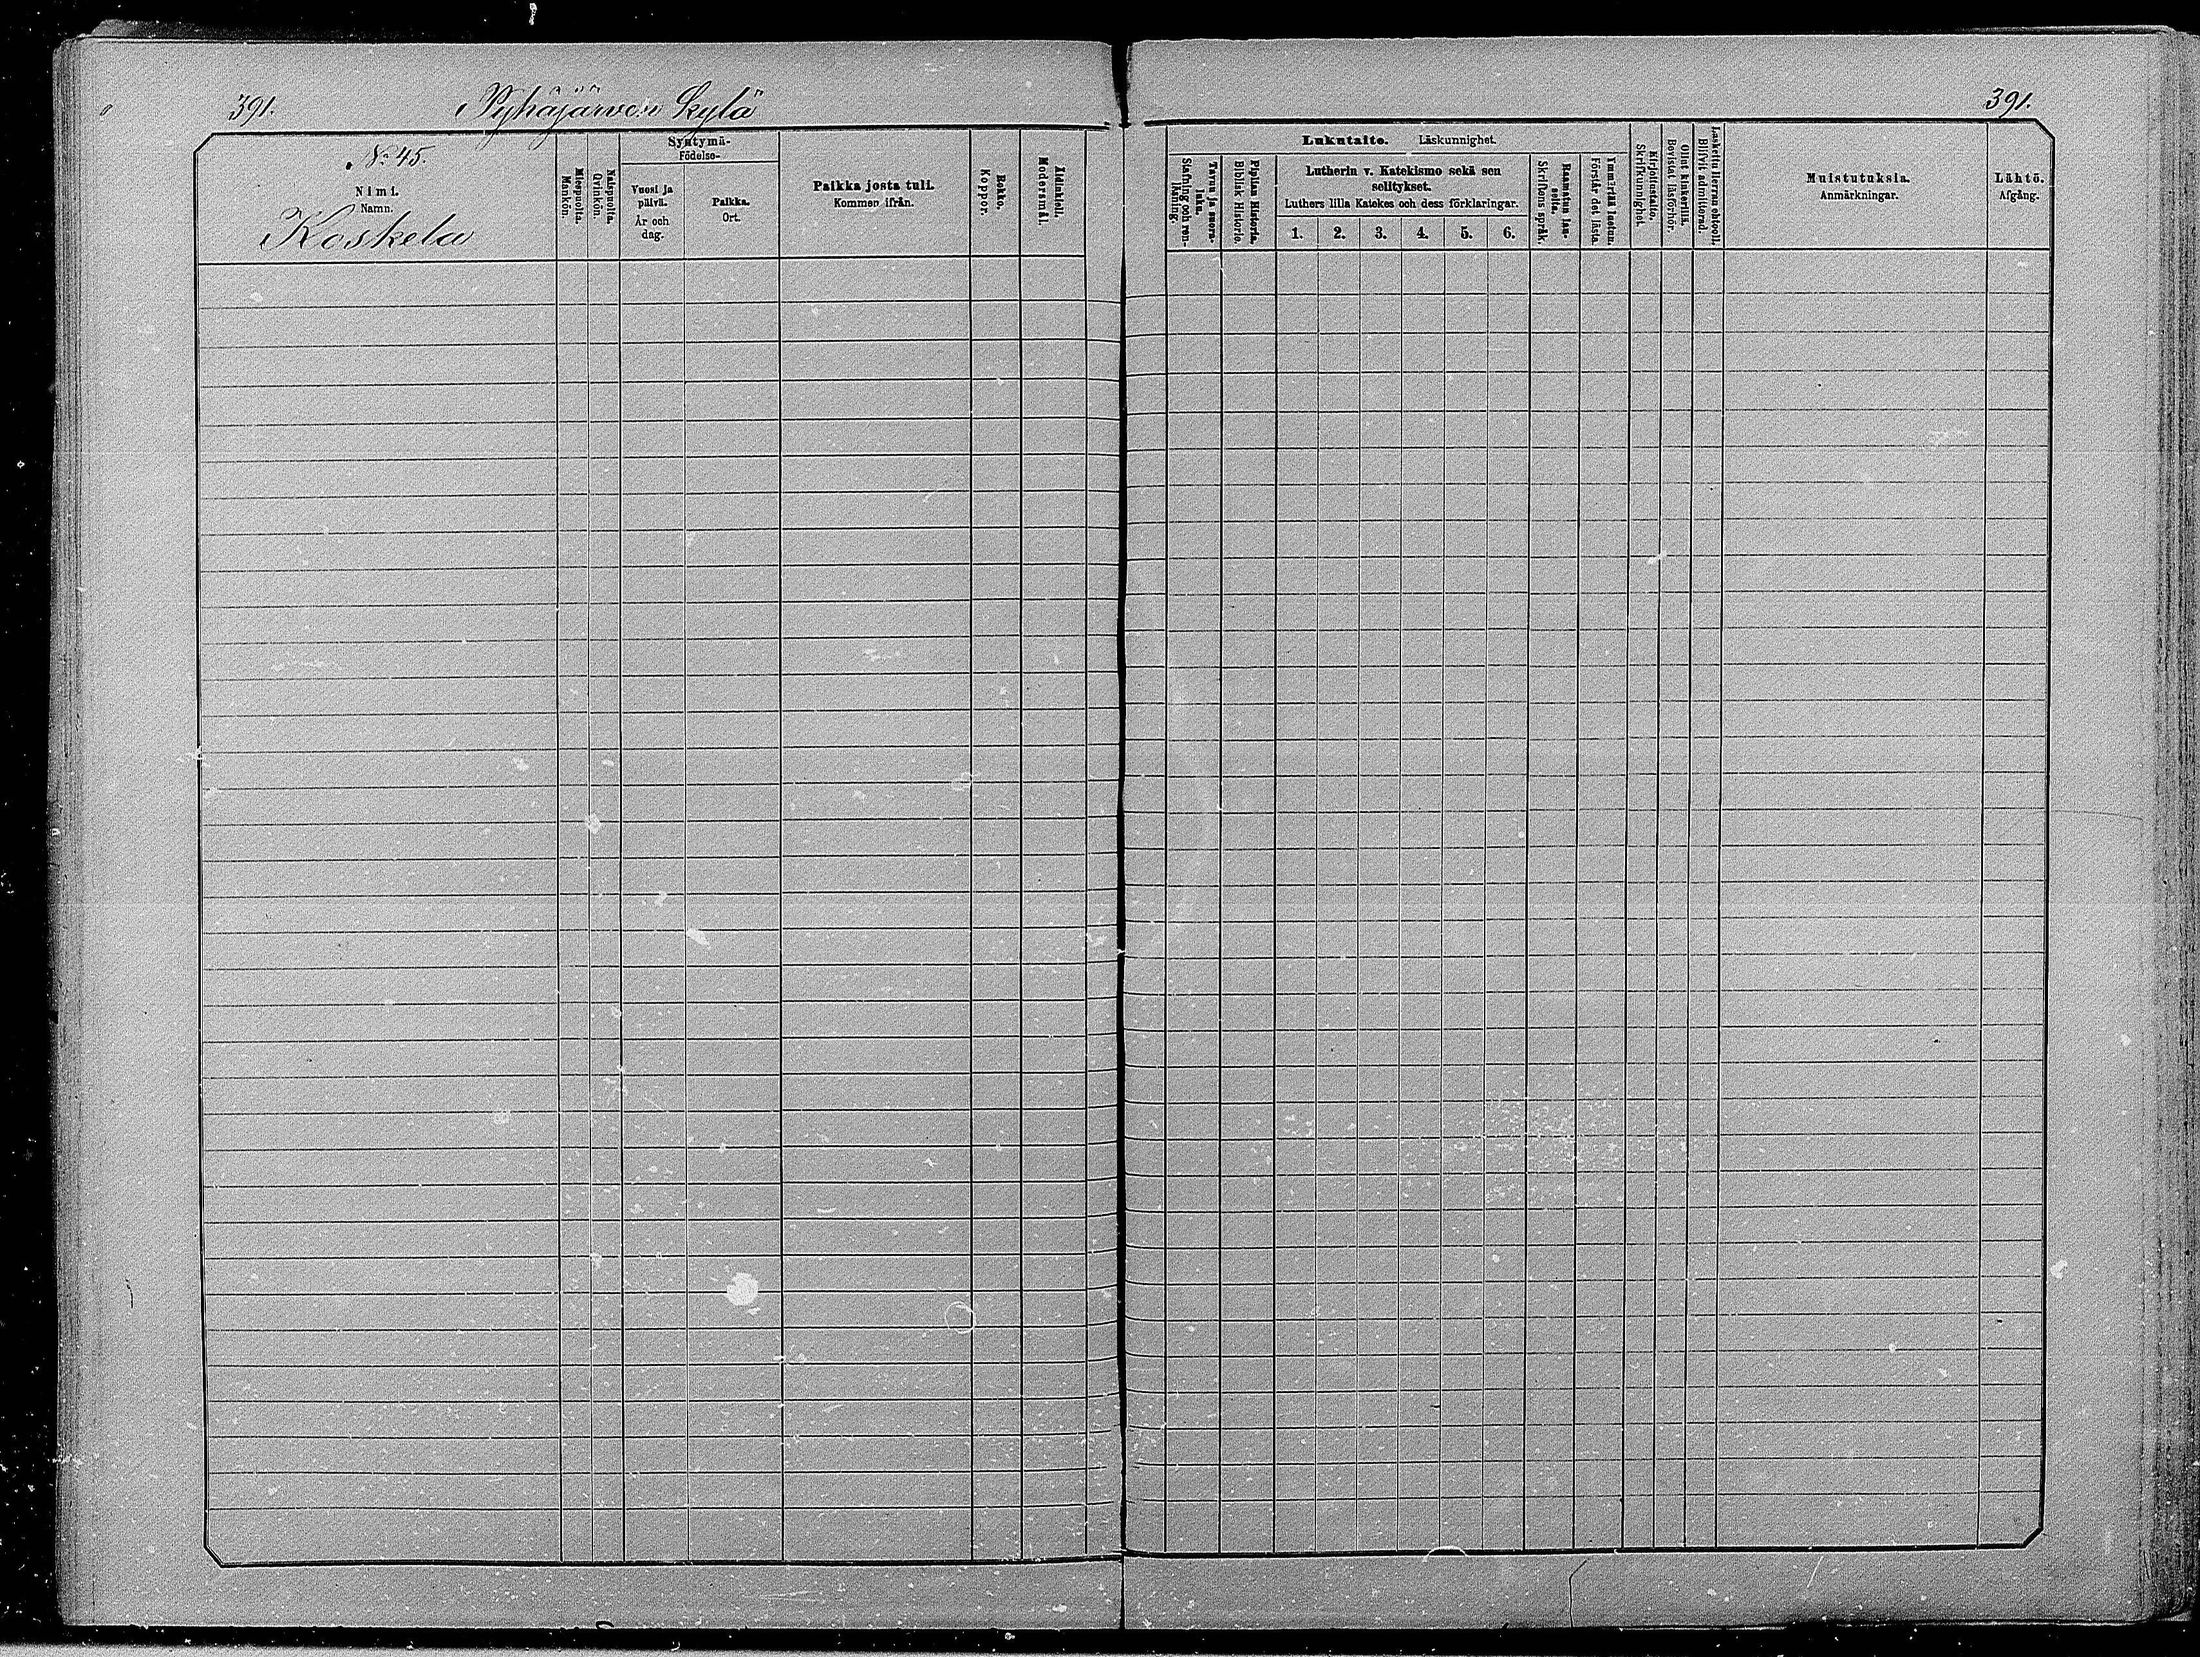 391.
Pyhäjärven kylä
391.
No 45.
Nimi.
Namn.
Koskela
Miespuolta.
Mankön.
Naispuolta.
Qvinkön.
Syntymä-
Födelse-
Vuosi ja
päivä.
År och
dag.
Paikka.
Ort.
Paikka josta tuli.
Kommen ifrån.
Rokko.
Koppor.
Äidinkieli.
Modersmål.
Lukutaito. Läskunnighet.
Tavuu ja suora-
luku.
Stafning och ren-
läsning.
Piplian Historia.
Biblisk Historie.
Lutherin v. Katekismo sekä sen
selitykset.
Luthers lilla Katekes och dess förklaringar.
1. 2. 3. 4. 5. 6.
Raamatun lau-
seita.
Skriftens språk.
Ymmärtää luetun.
Förstår det lästa.
Kirjoitustaito.
Skrifkunnighet.
Ollut kinkerillä.
Bevistat läsförhör.
Laskettu Herran ehtooll.
Blifvit admitterad.
Muistutuksia.
Anmärkningar.
Lähtö.
Afgång.